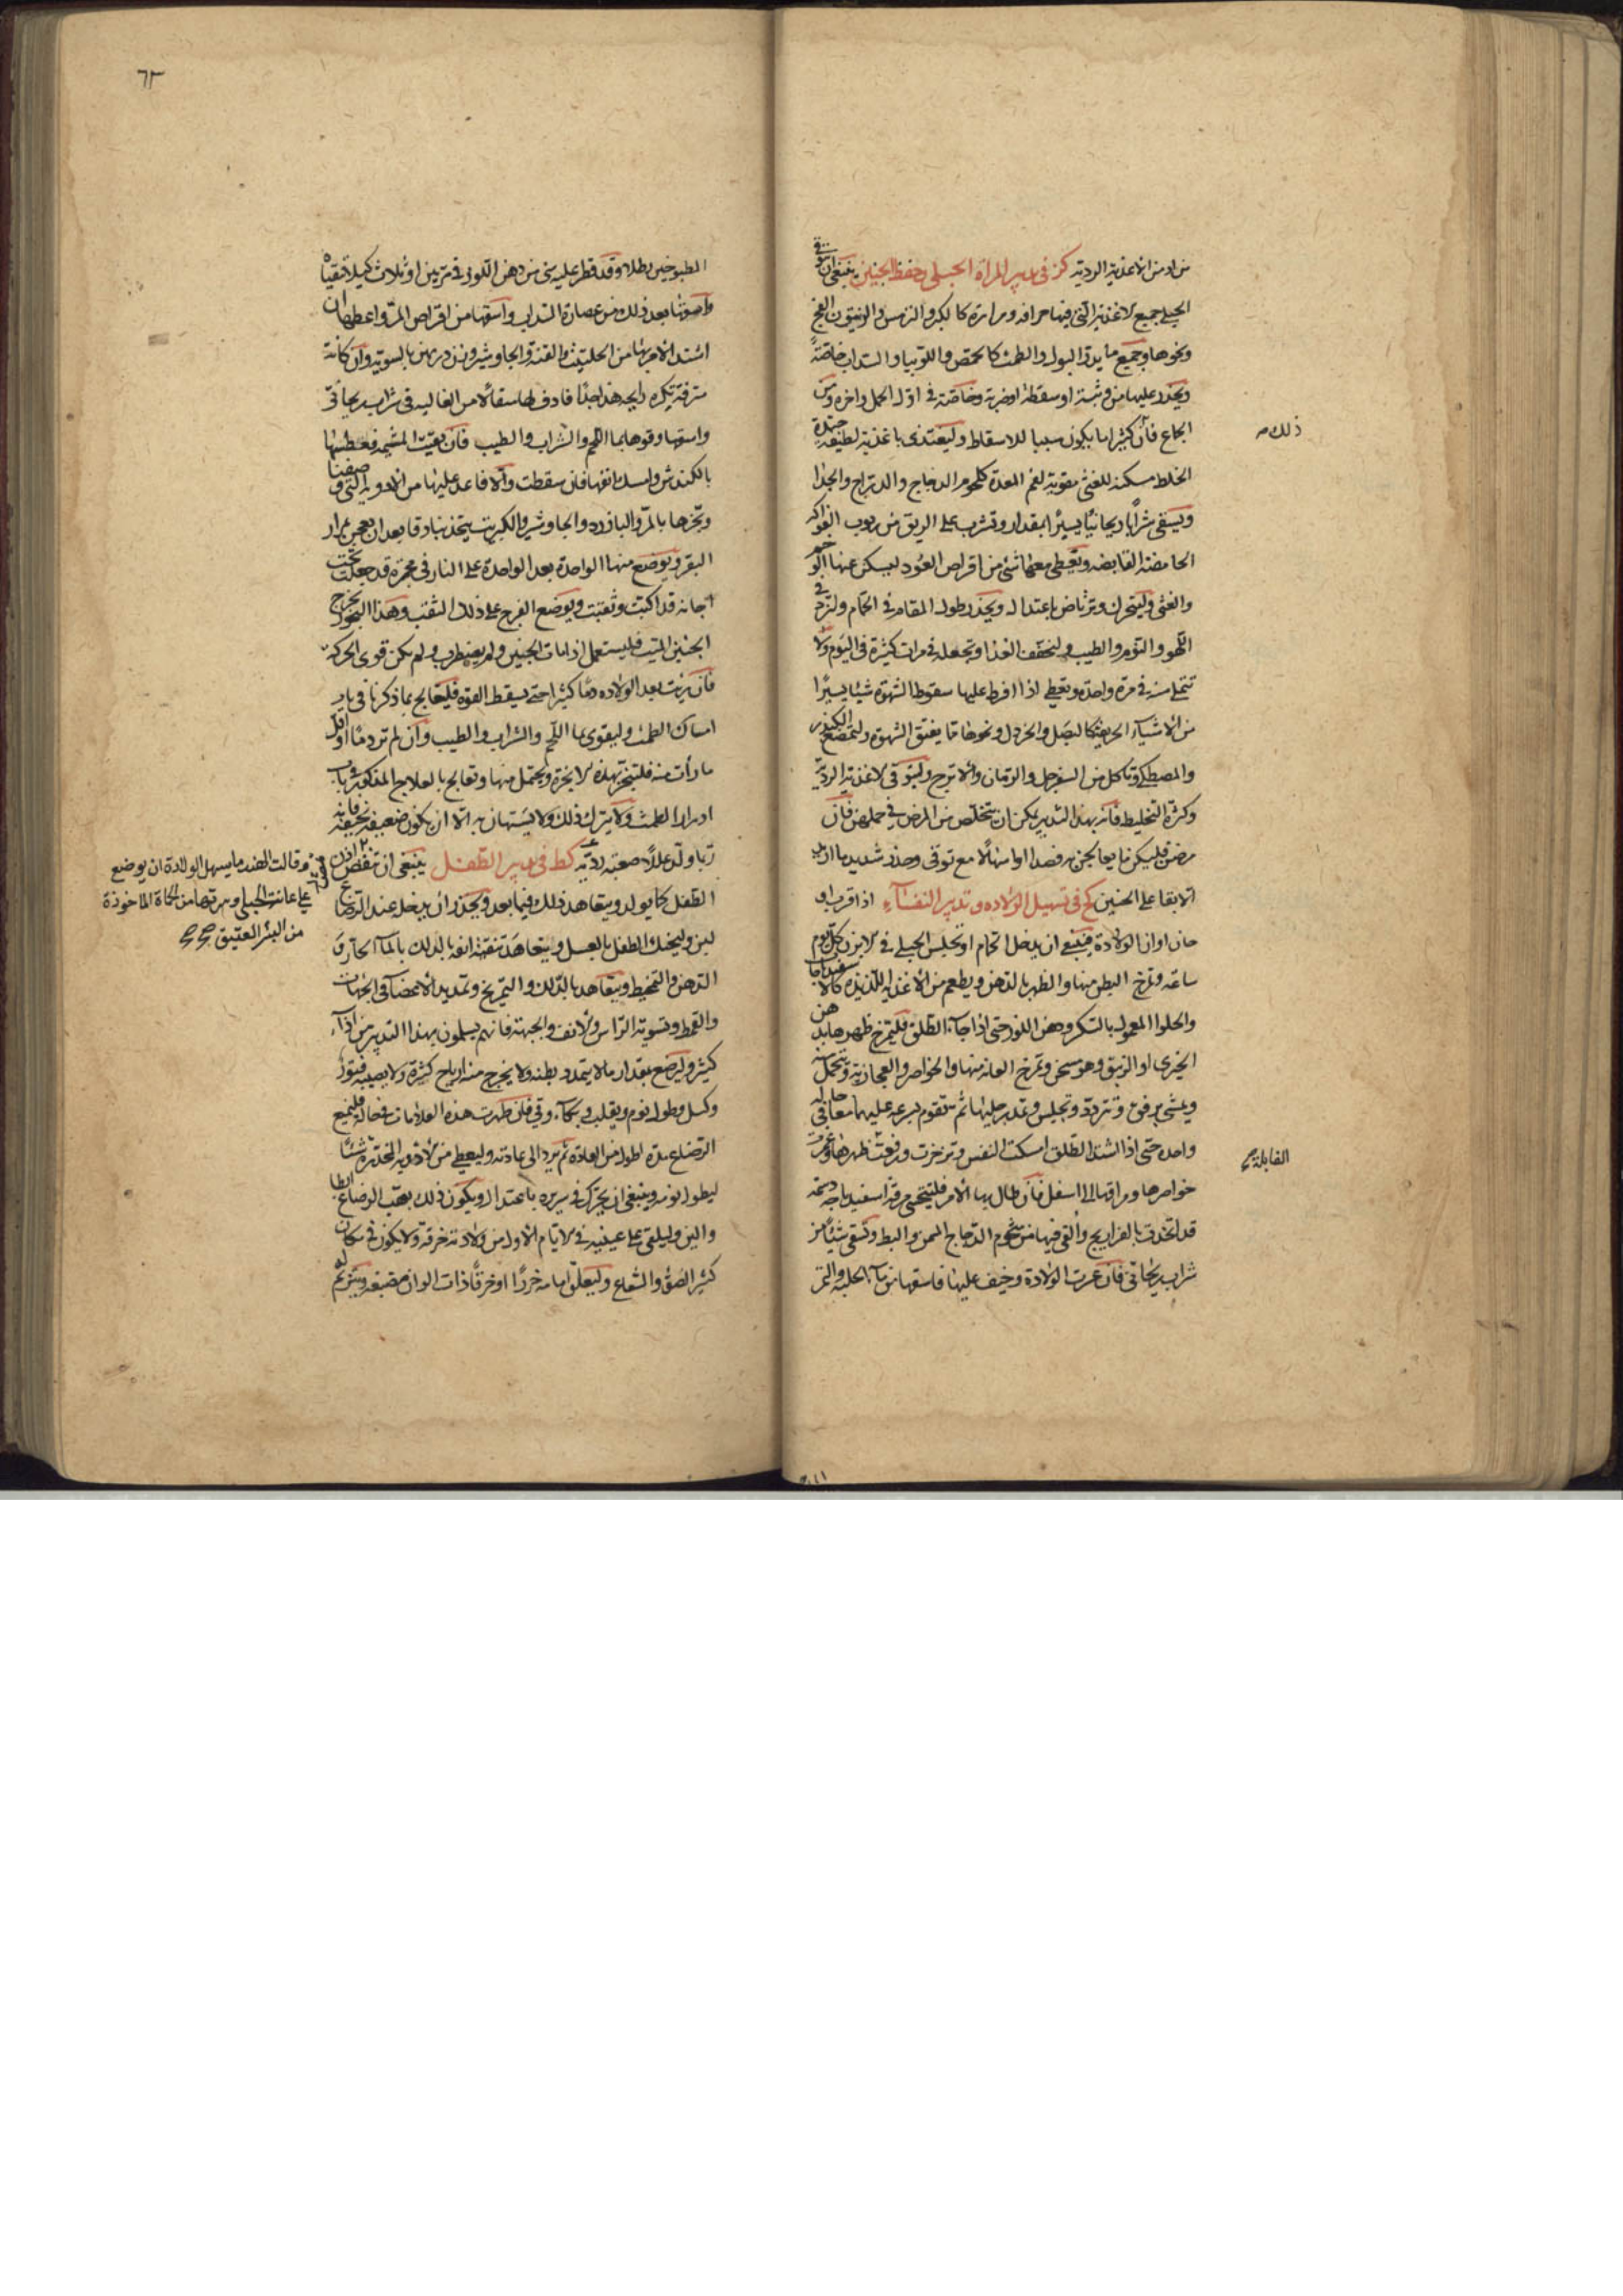 من او من الاغذية الردية كز فى تدبير المراة الحبلى وحفظ الجنين ينبغى ان تتوقى
الحبلى جميع الاغذية التى فيها حرافه ومرارة كالكبر والترمس والزيتون الفج
ونحوها وجميع ما يدر البول والطمث كالحمص واللوبيا والسداب خاصةً
ويحذر عليها من وثبة او سقطة او ضربة وخاصة فى اول الحمل واخره ومن
الجماع فان كثيرا ما يكون سببا للاسقاط وليغتذى باغذية لطيفة جيدة
ذلك
الخلط مسكنه للغثى مقوية لفم المعدة كلحوم الدجاج والدراج والجدا
ويسقى شرابا ريحانيا يسيرا بمقدار وتشرب على الريق من ربوب الفواكه
الحامضة القابضه وتعطى معها شئ من اقراص العود ليسكن عنها
والغثى وليتحرك وترتاض باعتدال ويحذر طول المقام فى الحمام ولتزد فى
اللهو والنوم والطيب ولتخفف الغذا وتجعله فى مرات كثيرة فى اليوم ولا
تتملى منه فى مرة واحدة وتعطى اذا افرط عليها سقوط الشهوة شيئا يسيرا
من الاشياء الحريفة كالبصل والخردل ونحوها مما يفتق الشهوة ولتمضغ الكندر
والمصطكى وتاكل من السفرجل والرمان والاترج وليتوقى الاغذية الردية
وكثرة التخليط فانه بهذا التدبير يمكن ان يتخلص من المرض فى حملهن فان
مرضن فليكن ما يعالجن به فصدا او اسهالا مع توقى وحذر شديد
الابقا على الجنين كح فى تسهيل الولاده وتدبير النفساء اذا قرب او
حان اوان الولادة فينبغى ان يدخل الحمام او تجلس الحبلى فى الابزن كل يوم
ساعه وتمرخ البطن منها والظهر بالدهن ويطعم من الاغذية اللذيذة كالاسفيذباجا
والحلوا المعمول بالسكر ودهن اللوز حتى اذا جاء الطلق فليتمرخ ظهرها بدهن
الخيرى او الزنبق وهو مسخن وتمرخ العانه منها والخواصر والعجاز منه وتتحمل
ويمشى برفق وتتردد وتجلس وتمد رجليها ثم تقوم بسرعه عليهما معا فى حاله
واحدة حتى اذا اشتد الطلق امسكت النفس وتزحرت ورفعت ظهرها وغمزت
القابلة
خواصرها ومراقها الى اسفل فان طال بها الامر فليتحسى مرقة اسفيدباجة دسمة
قد اتخذت بالفراريج والقى فيها من شحوم الدجاج المسمن والبط وتسقى شيئا من
شراب ريحانى فان عسرت الولادة وخيف عليها فاسقها من ماء الحلبه والتمر
٦٣
المطبوخين رطلا وقد قطر عليه شى من دهن اللوز فى مرتين او ثلاث كيلا تتقياه
واسقها بعد ذلك من عصارة السداب واسقها من اقراص المر واعطها ان
اشتد الامر بها من الحلتيت والقنة والجاوشير وزن درهمين بالسوية وان كانت
مترفة تكره رايحة هذا جدا فادف لها مثقالا من الغاليه فى شراب ريحانى
واسقها وقوها بما اللحم والشراب والطيب فان بقيت المشيمة فعطسها
بالكندش وامسك انفها فان سقطت والا فاعد عليها من الادوية التى وصفنا
وبخرها بالمر والبازرد والجاوشير والكبريت يتخذ بنادقا بعد ان يعجن بمرار
البقر ويوضع منها الواحدة بعد الواحدة على النار فى مجمرة قد جعلت تحت
اجانة قد اكبت وثقبت ويوضع الفرج على ذلك الثقب وهذا البخور يخرج
الجنين الميت فليستعمل اذا مات الجنين ولم يضطرب ولم يكن قوى الحركة
فان نزفت بعد الولاده دما كثيرا حتى يسقط القوه فليعالج بما ذكرنا فى باب
امساك الطمث وليقوى بما اللحم والشراب والطيب وان لم تر دما او اقل
ما رأت منه فلتبخر بهذه الابخرة وتحتمل منها وتعالج بالعلاج المذكور فى باب
ادرار الطمث ولا يترك ذلك ولا يستهان به الا ان يكون ضعيفة نحيفة فانه
ربما ولد عللا صعبة ردية كط فى تدبير الطفل ينبغى ان تنفض اذن
وقالت الهند مما يسهل الولادة ان يوضع
على عانة الحبلى وسرتها من الحمأة الماخوذة
من البئر العتيق
الطفل كما يولد ويتعاهد ذلك فيما بعد ويحذر ان يدخلها عند الرضاع
لبن وليحنك الطفل بالعسل ويتعاهد تنقية انفه بالدلك بالماء الحار و
الدهن والتمخيط ويتعاهد بالدلك والتمريخ وتمديد الاعضا فى الجهات
والقمط وتسوية الراس والانف والجبهة فانهم يسلمون بهذا التدبير من اذاء
كثير وليرضع بقدار ما لا يتمدد بطنه ولا يخرج منه ارياح كثيرة ولا يصيبه فتور
وكسل وطول نوم وتقلب وبكاء وقى فان ظهرت هذه العلامات فى حال فليمنع
الرضاع مدة اطول من العادة ثم يرد الى عادته وليعطى من الادوية المخدرة شيئا
ليطول نومه وينبغى ان يحرك فى سريره باعتدال ويكون ذلك بعقب الرضاع ابطا
والين وليلقى على عينيه فى الايام الاول من ولادته خرقة ولا يكون فى مكان
كثير الضوء والشعاع وليعلق امامه خرزا او خرقا ذات الوان مصبغة ويترنم له